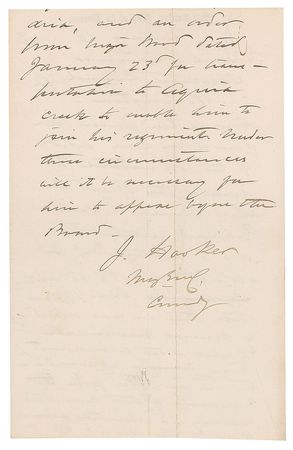 dria, and an order
from Major Wood dated
January 23d for trans-
portation to Aquia
creek to enable him to
join his regiment. Under
these circumstances
will it be necessary for
him to appear before the
Board -
J. Hooker
Maj Genl.
Comdg